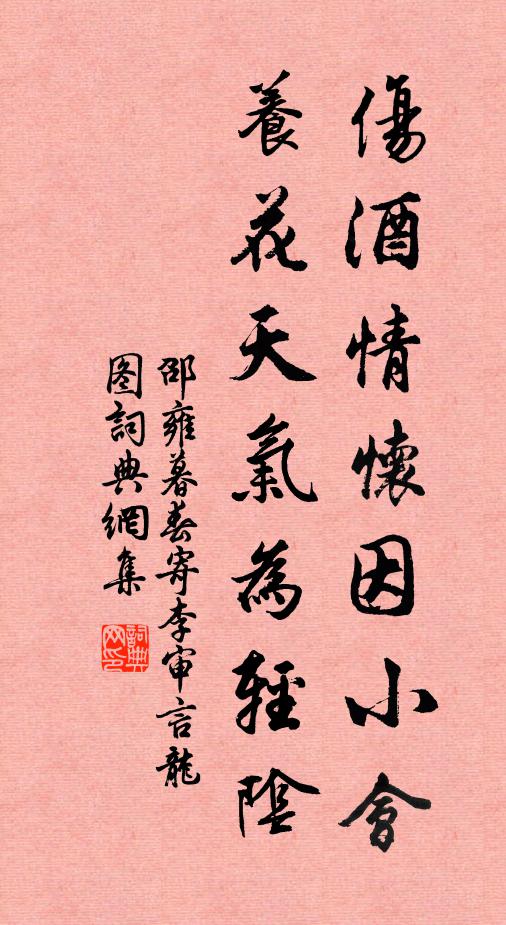 傷酒情懷因小會
養花天氣為輕陰
邵雍暮春寄李审言龍
图詞典網集
詞典网印